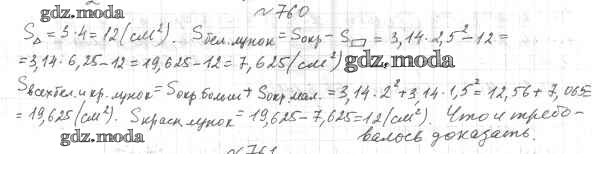 gdz.moda
№760
S△ = 3·4=12(см²). Sбел.лунок = Sокр - S▭ = 3,14·2,5² -12=
=3,14·6,25-12=19,625-12=7,625(см²) gdz.moda
Sвсех бел.и кр.лунок = Sокр больш + Sокр.мал. = 3,14·2²+3,14·1,5² = 12,56+7,065=
= 19,625(см²). Sкрасн.лунок = 19,625-7,625=12(см²). Что и требо-
gdz.moda валось доказать.
№761